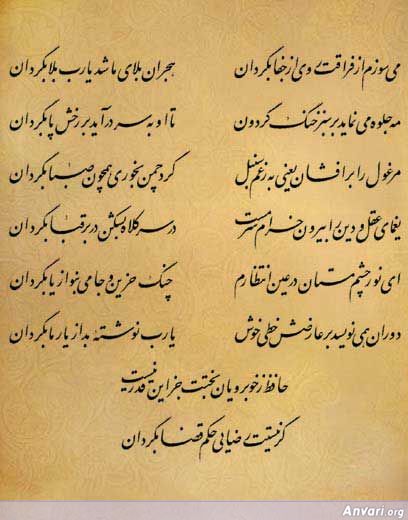 می‌سوزم از فراقت روی از جفا بگردان هجران بلای ما شد یارب بلا بگردان
مه جلوه می نماید بر سبز خنگ گردون تا او به سر درآید بر رخش پا بگردان
مرغول را برافشان یعنی به زغم سنبل گرد چمن بخوری همچون صبا بگردان
یغمای عقل و دین را بیرون خرام سرمست در سر کلاه بشکن در بر قبا بگردان
ای نور چشم مستان در عین انتظارم چنگ حزین و جامی بنواز یا بگردان
دوران همی نویسد بر عارضش خطی خوش یارب نوشته بد از یار ما بگردان
حافظ ز خوبرویان بختت جز این قدر نیست
گر نیستت رضایی حکم قضا بگردان
Anvari.org